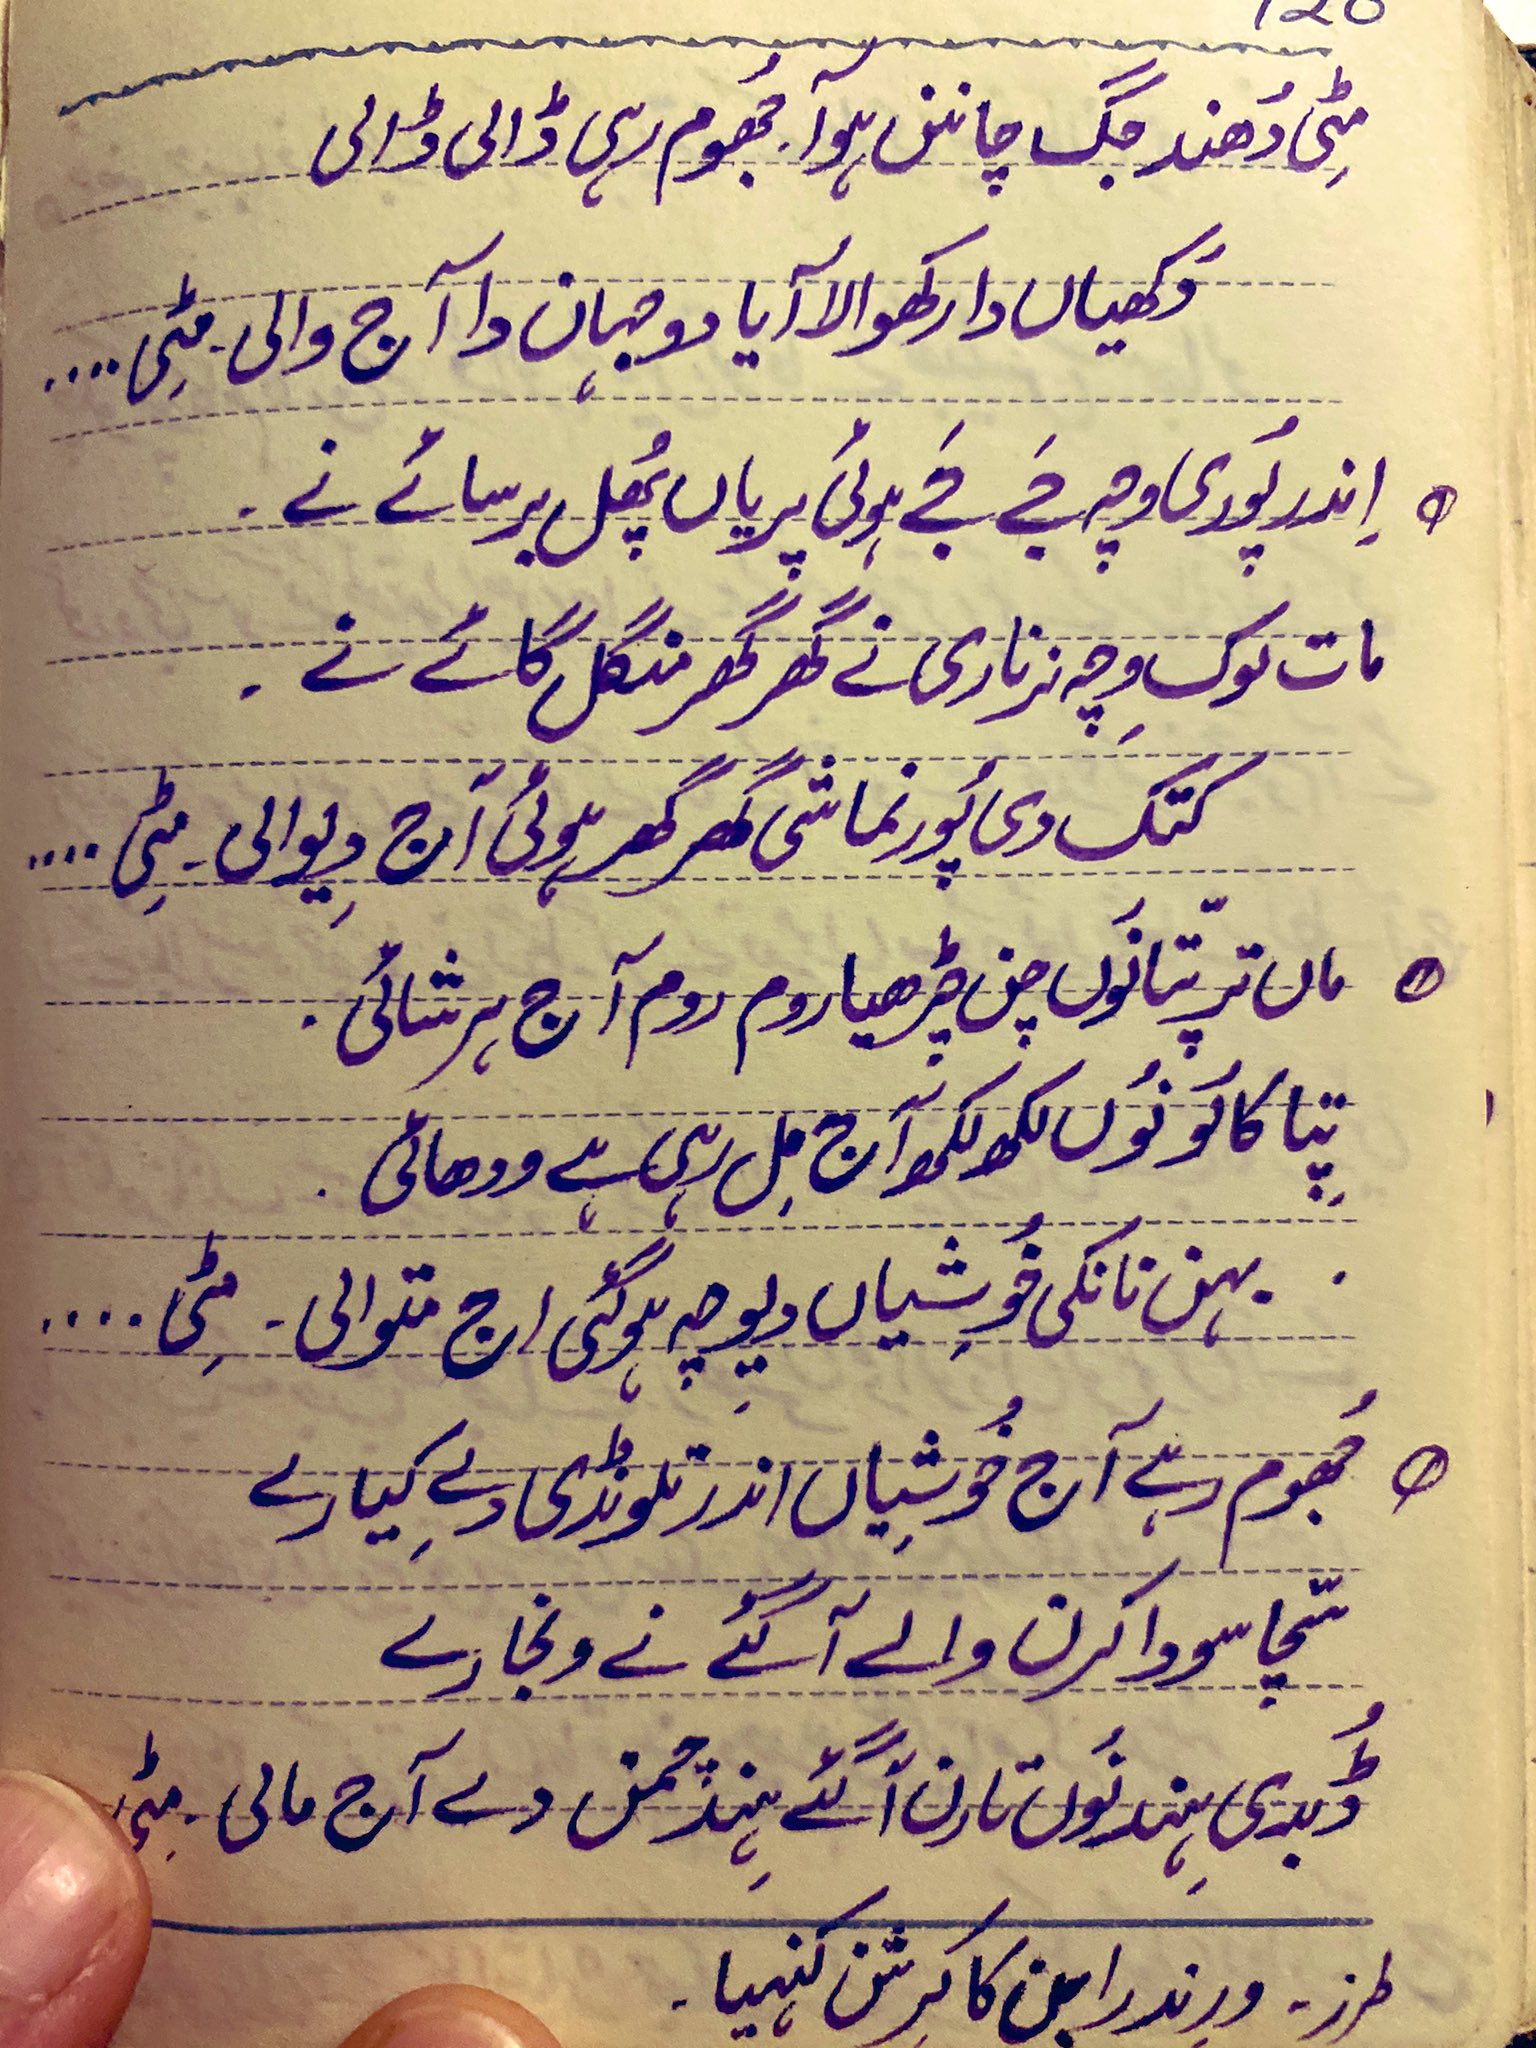 120
مِٹی دُھند جگ چانن ہوآ۔ جُھوم رہی ڈالی ڈالی
دُکھیاں دا رکھوالا آیا دوجہان دا آج والی۔ مِٹی ....
اِندر پُوری وچہ جَے جَے ہوئی پریاں پُھل برسائے نے ۔
مات لوک وِچہ نرناری نے گھر گھر منگل گائے نے ۔
کتک دی پُورنماشی گھر گھر ہوئی آج دِیوالی۔ مِٹی ....
ماں ترپّتا نُوں چن چڑھیا روم روم آج ہرشائی ۔
پِتا کالُو نُوں لکھ لکھ آج مِل رہی ہے وودھائی ۔
بہن نانکی خُوشِیاں وِیوچہ ہوگئی اج متوالی ۔ مِٹی ....
جُھوم رہے آج خُوشِیاں اندر تلونڈی دے کِیارے
سّچا سودا کرن والے آگئے نے ونجارے
ڈُبدی ہِند نُوں تارن آگئے ہِند چمن دے آج مالی ۔ مِٹی
طرز ۔ وِرندرابن کا کرِشن کنہیا ۔